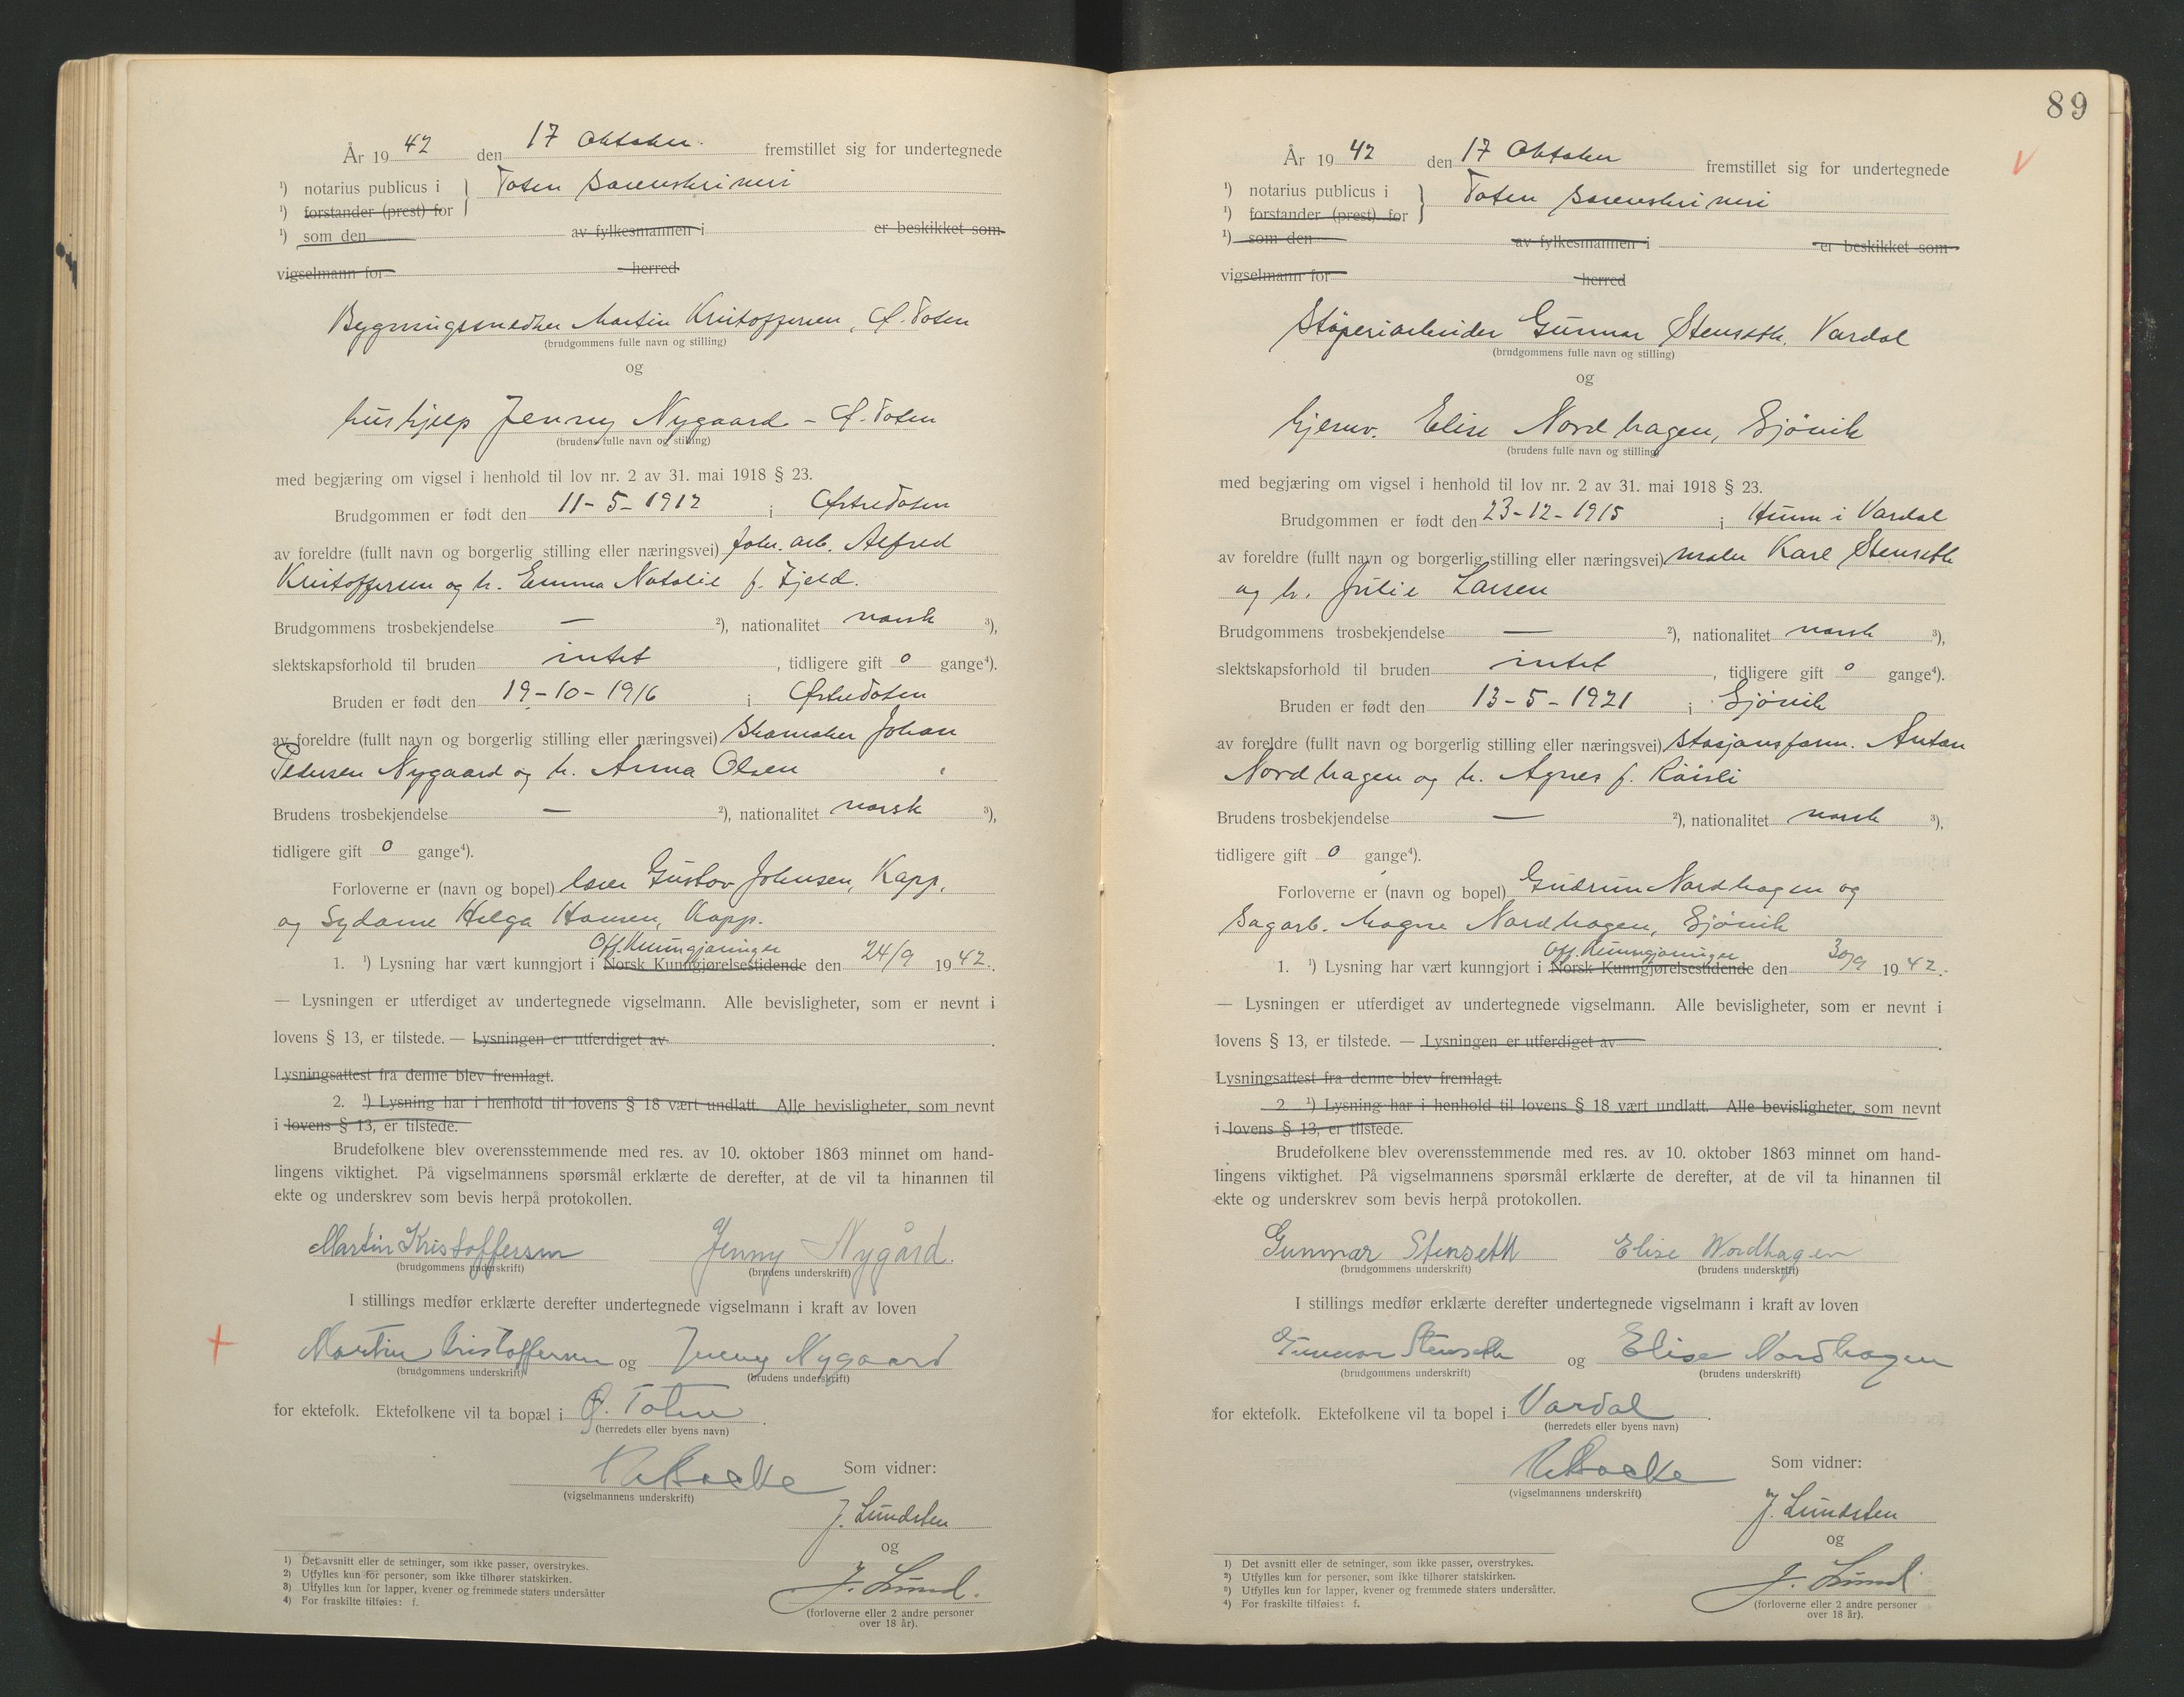 År 19 42 den 17 Oktober. fremstillet sig for undertegnede
¹) notarius publicus i } Toten Sorenskriveri
¹) forstander (prest) for
¹) som den av fylkesmannen i er beskikket som
vigselmann for herred
Bygningssnedker Martin Kristoffersen, Ø. Toten
(brudgommens fulle navn og stilling)
og
hushjelp Jenny Nygaard - Ø. Toten
(brudens fulle navn og stilling)
med begjæring om vigsel i henhold til lov nr. 2 av 31. mai 1918 § 23.
Brudgommen er født den 11-5-1912 i ØstreToten
av foreldre (fullt navn og borgerlig stilling eller næringsvei) fabr. arb. Alfred
Kristoffersen og h. Emma Natalie f. Fjeld.
Brudgommens trosbekjendelse — ²), nationalitet norsk ³),
slektskapsforhold til bruden intet , tidligere gift 0 gange⁴).
Bruden er født den 19-10-1916 i ØstreToten
av foreldre (fullt navn og borgerlig stilling eller næringsvei) Skomaker Johan
Pedersen Nygaard og h. Anna Olsen
Brudens trosbekjendelse — ²), nationalitet norsk ³),
tidligere gift 0 gange⁴).
Forloverne er (navn og bopel) Gustav Johnsen, Kapp,
og Sydame Helga Hansen, Kapp.
Off. Kunngjøringer
1. ¹) Lysning har vært kunngjort i Norsk Kunngjørelsestidende den 24/9 19 42.
— Lysningen er utferdiget av undertegnede vigselmann. Alle bevisligheter, som er nevnt i
lovens § 13, er tilstede. — Lysningen er utferdiget av .
Lysningsattest fra denne blev fremlagt.
2. ¹) Lysning har i henhold til lovens § 18 vært undlatt. Alle bevisligheter, som nevnt
i lovens § 13, er tilstede.
Brudefolkene blev overensstemmende med res. av 10. oktober 1863 minnet om hand-
lingens viktighet. På vigselmannens spørsmål erklærte de derefter, at de vil ta hinannen til
ekte og underskrev som bevis herpå protokollen.
Martin Kristoffersen Jenny Nygård.
(brudgommens underskrift) (brudens underskrift)
I stillings medfør erklærte derefter undertegnede vigselmann i kraft av loven
Martin Kristoffersen og Jenny Nygaard
(brudgommens underskrift) (brudens underskrift)
for ektefolk. Ektefolkene vil ta bopæl i Ø. Toten .
(herredets eller byens navn)
Som vidner:
(vigselmannens underskrift)
J. Lundsten
og
J. Lund.
(forloverne eller 2 andre personer
over 18 år).
1) Det avsnitt eller de setninger, som ikke passer, overstrykes.
2) Utfylles kun for personer, som ikke tilhører statskirken.
3) Utfylles kun for lapper, kvener og fremmede staters undersåtter
4) For fraskilte tilføies: f.
89
År 19 42 den 17 Oktober fremstillet sig for undertegnede
¹) notarius publicus i } Toten Sorenskriveri
¹) forstander (prest) for
¹) som den av fylkesmannen i er beskikket som
vigselmann for herred
Støperiarbeider Gunnar Stenseth. Vardal
(brudgommens fulle navn og stilling)
og
hjemv. Elise Nordhagen, Gjøvik
(brudens fulle navn og stilling)
med begjæring om vigsel i henhold til lov nr. 2 av 31. mai 1918 § 23.
Brudgommen er født den 23-12-1915 i Hunn i Vardal
av foreldre (fullt navn og borgerlig stilling eller næringsvei) maler Karl Stenseth
og h. Julie Larsen
Brudgommens trosbekjendelse — ²), nationalitet norsk ³),
slektskapsforhold til bruden intet , tidligere gift 0 gange⁴).
Bruden er født den 13-5-1921 i Gjøvik
av foreldre (fullt navn og borgerlig stilling eller næringsvei) Stasjonsform. Anton
Nordhagen og h. Agnes f.
Brudens trosbekjendelse — ²), nationalitet norsk ³),
tidligere gift 0 gange⁴).
Forloverne er (navn og bopel) Gudrun Nordhagen og
Sagarb. Magne Nordhagen, Gjøvik
Off. Kunngjøringer
1. ¹) Lysning har vært kunngjort i Norsk Kunngjørelsestidende den 30/9 19 42.
— Lysningen er utferdiget av undertegnede vigselmann. Alle bevisligheter, som er nevnt i
lovens § 13, er tilstede. — Lysningen er utferdiget av .
Lysningsattest fra denne blev fremlagt.
2 ¹) Lysning har i henhold til lovens § 18 vært undlatt. Alle bevisligheter, som nevnt
i lovens § 13, er tilstede.
Brudefolkene blev overensstemmende med res. av 10. oktober 1863 minnet om hand-
lingens viktighet. På vigselmannens spørsmål erklærte de derefter, at de vil ta hinannen til
ekte og underskrev som bevis herpå protokollen.
Gunnar Stenseth Elise Nordhagen
(brudgommens underskrift) (brudens underskrift)
I stillings medfør erklærte derefter undertegnede vigselmann i kraft av loven
Gunnar Stenseth og Elise Nordhagen
(brudgommens underskrift) (brudens underskrift)
for ektefolk. Ektefolkene vil ta bopel i Vardal .
(herredets eller byens navn)
Som vidner:
(vigselmannens underskrift)
J. Lundsten
og
J. Lund
(forloverne eller 2 andre personer
over 18 år).
1) Det avsnitt eller de setninger, som ikke passer, overstrykes.
2) Utfylles kun for personer, som ikke tilhører statskirken.
3) Utfylles kun for lapper, kvener og fremmede staters undersåtter.
4) For fraskilte tilføies: f.